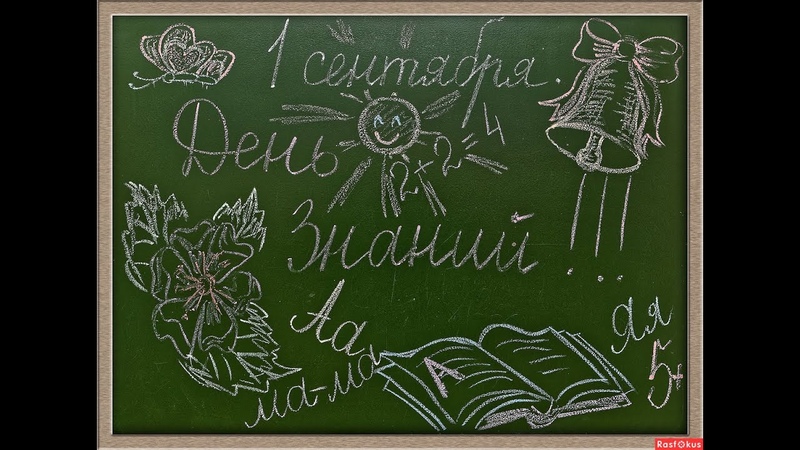 1 сентября.
День
2+2=4
Знаний
Аа
Яя
ма-ма
А
5+
RasfOkus